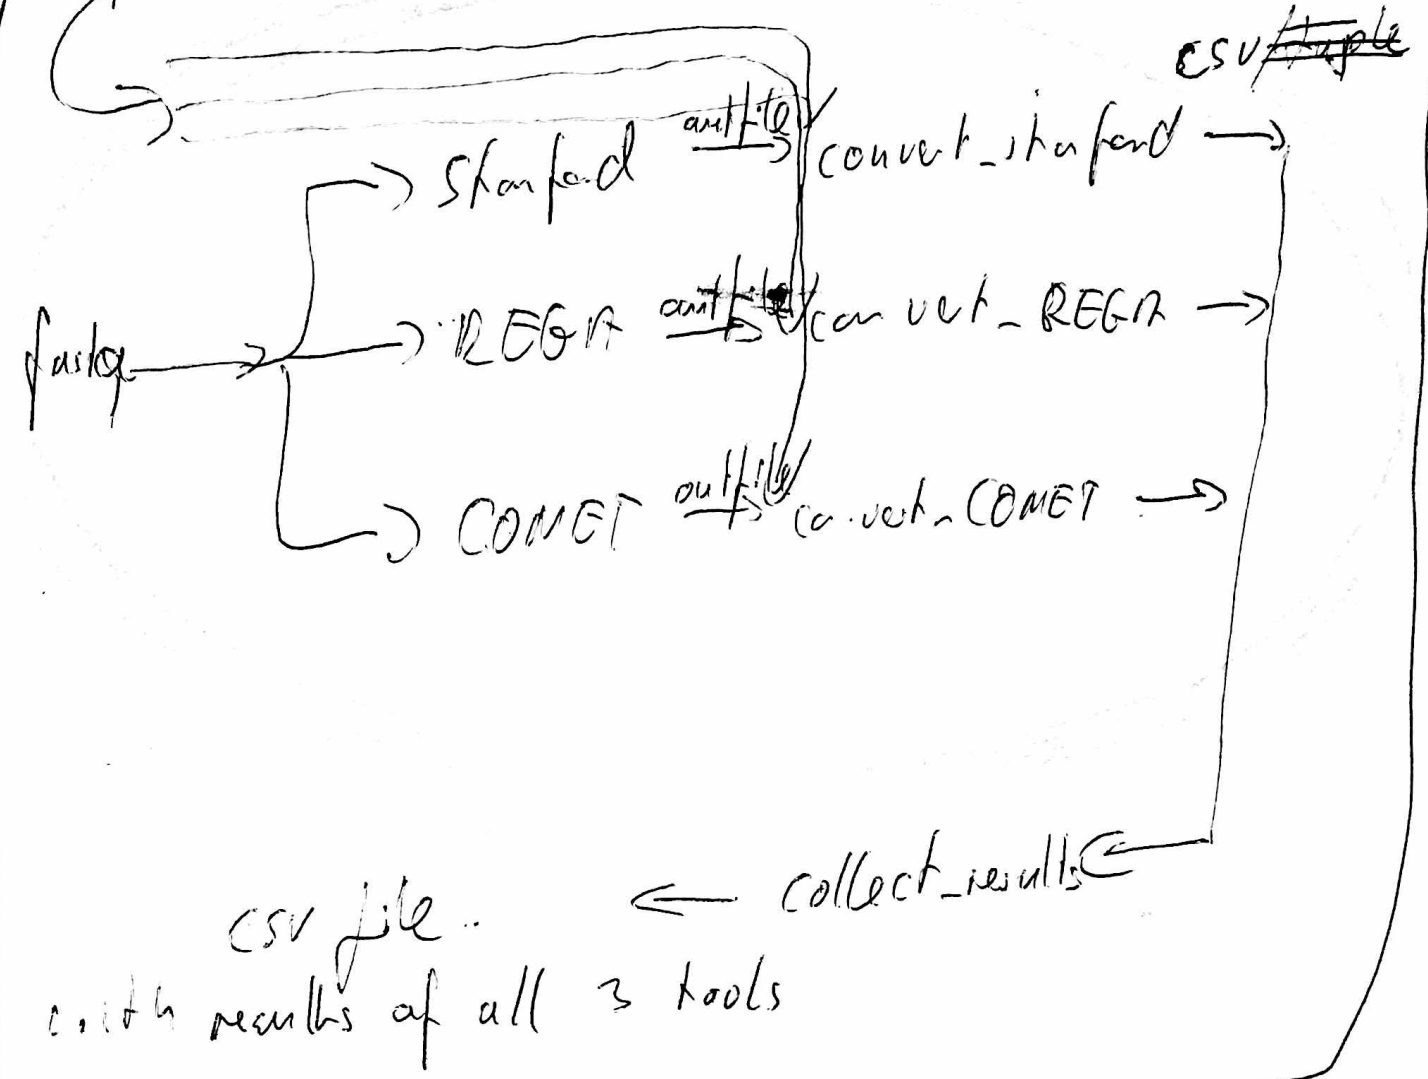 csv/tuple
Stanford outfile convert_stanford
fastq REGA outfile convert_REGA
COMET outfile convert_COMET
collect_results
csv file
with results of all 3 tools